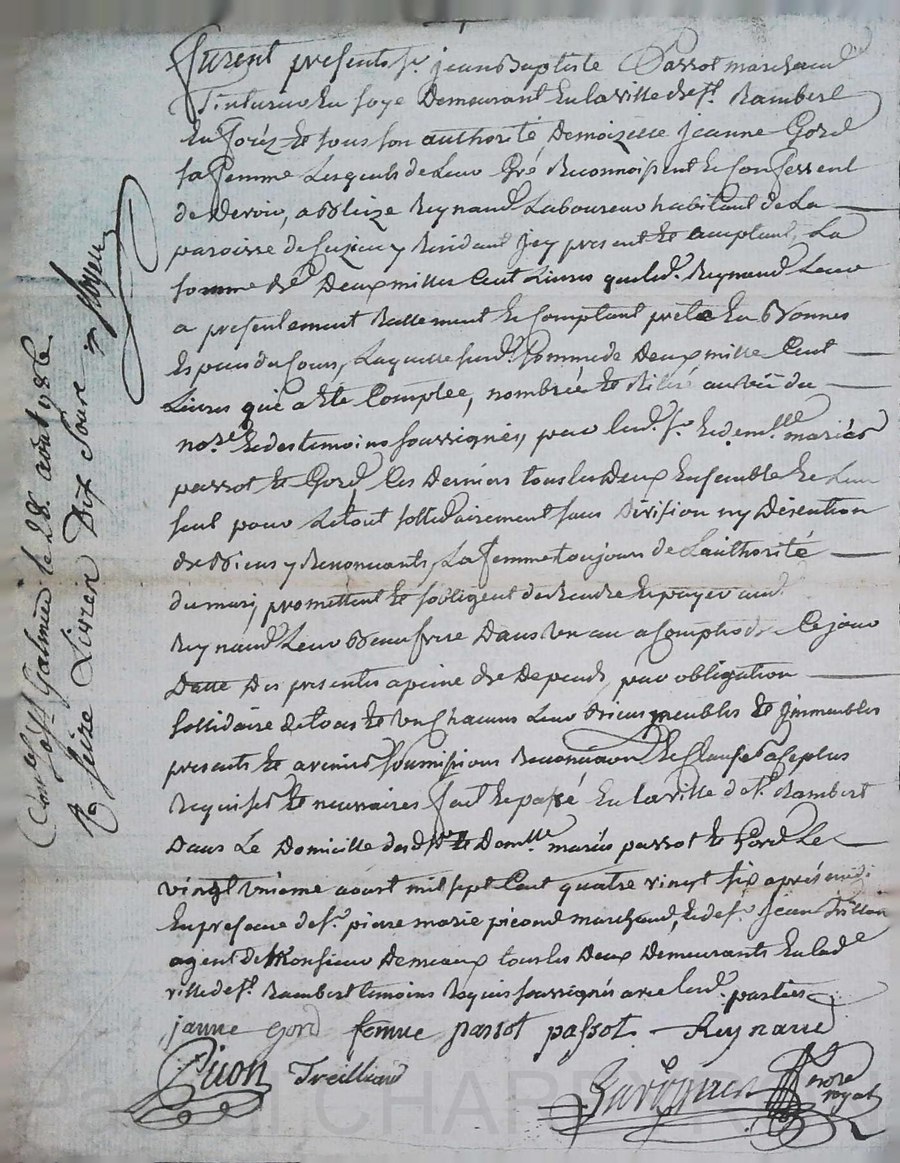 furent presents sr. jean Baptiste Passot marchand
Tinturier En soye Demeurant En la ville de st. Rambert
En forêz Et sous son authorité, Demoizelle jeanne Gord
sa femme Lesquels de Leur Gré Reconnoissent Et Confessent
de Devoir, a Reynaud Laboureur habitant de La
paroisse de y Residant jcy present Et acceptant, La
somme de Deux mille Cent Livres que led. Reynaud Leur
a presentement Reellement Et Comptant preté En Bonnes
Especes du Cours, Laquelle susd. somme de Deux mille Cent
Livres que a Eté Comptée, nombrée Et Retiré au vu du
nore Et des temoins soussignés, par lesd. sr. Et demlle mariés
passot Et Gord, Ces Derniers tous les Deux Ensemble Et Lun
seul pour Le tout sollidairement sans Division ny Discution
de Biens y Renoncants, La femme toujours de Lauthorité
du mari, promettent Et sobligent de Rendre Et payer aud.
Reynaud Leur Beaufrere Dans Un an a Compter de Ce jour
Datte Des presentes a peine de Depends, par obligation
sollidaire de tous Et Un Chacuns Leur Biens meubles Et jmmeubles
presents Et avenirs soumissions Renonciations Et Clauses a Ce plus
Requises Et necessaires fait Et passé En la ville de st. Rambert
Dans Le Domicille desd. sr. Et Demlle mariés passot Et Gord Le
vingt Unieme aoust mil sept Cent quatre vingt six aprés midi
En presence de sr. pierre marie picon marchand, Et de sr. jean
agent de Monsieur Demeaux tous les Deux Demeurants En lade
ville de st. Rambert temoins Requis soussignés avec lesd. parties
janne gord femme passot passot Reynaud
Picon Treilliard
nore
royal
Conlé à St Galmier le 28. août 1786
R seize Livres Dix sous
Pascal CHAPEYRON